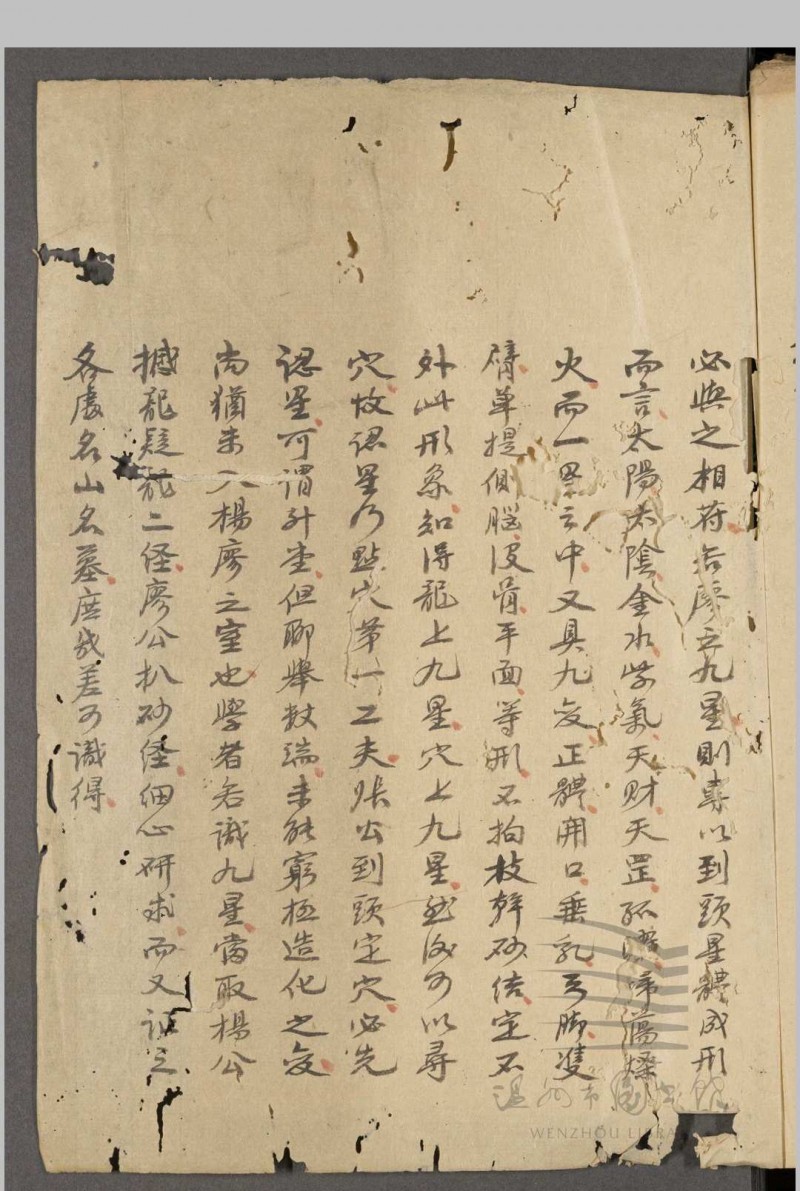 必與之相符若廖之九星則專以到頭星體成形
而言太陽太陰金水紫氣天財天罡孤曜掃蕩燥
火而一星之中又具九变正體開口垂乳弓脚雙
臂单提側腦没骨平面等形不拘枝幹砂结定不
外此形象知得龍上九星穴上九星然後可以尋
穴故認星乃點穴第一工夫賬公到頭定穴必先
認星可謂升堂但聊舉数端未能窮極造化之变
尚猶未入楊廖之室也學者若識九星當取楊公
撼龍疑龍二经廖公扒砂经細心研求而又証之
各處名山名墓庶幾差可識得
温州市圖書館
WENZHOU LIBRA